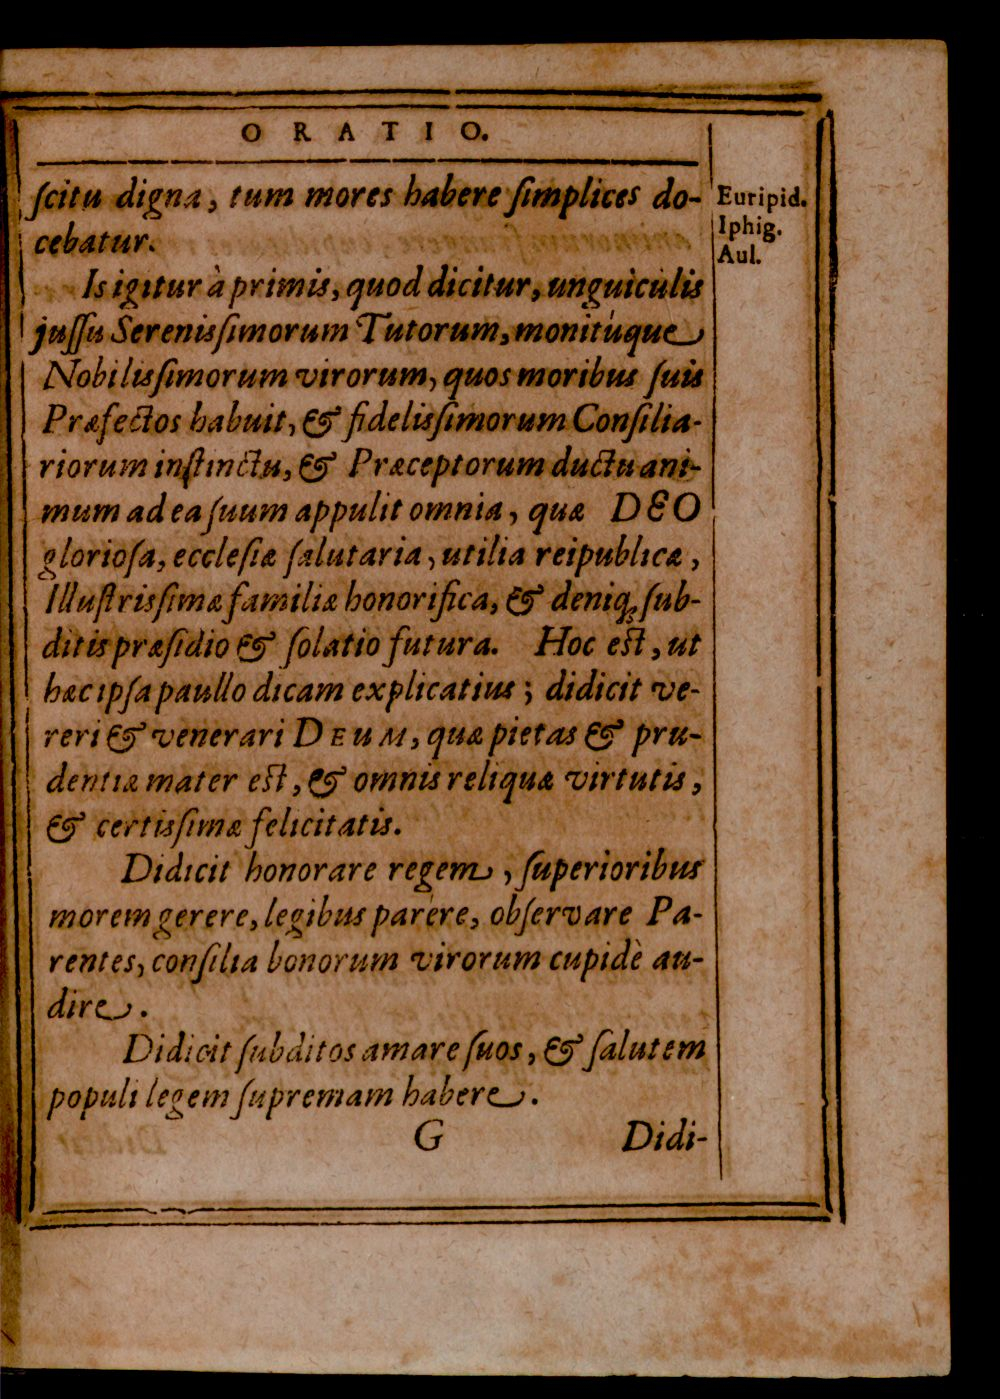 ORATIO.
ſcitu digna, tum mores habere ſimplices do-
cebatur.
Euripid.
Iphig.
Aul.
Is igitur à primis, quod dicitur, unguiculis
juſſu Sereniſſimorum Tutorum, monitúque
Nobiliſſimorum virorum, quos moribus ſuis
Præfectos habuit, & fideliſſimorum Conſilia-
riorum inſtinctu, & Præceptorum ductu ani-
mum ad ea ſuum appulit omnia, quæ DEO
glorioſa, eccleſiæ ſalutaria, utilia reipublicæ,
Illuſtriſſimæ familiæ honorifica, & deniq; ſub-
ditis præſidio & ſolatio futura. Hoc eſt, ut
hæc ipſa paullo dicam explicatius; didicit ve-
reri & venerari DEUM, quæ pietas & pru-
dentiæ mater eſt, & omnis reliquæ virtutis,
& certiſſimæ felicitatis.
Didicit honorare regem, ſuperioribus
morem gerere, legibus parére, obſervare Pa-
rentes, conſilia bonorum virorum cupidè au-
dire.
Didicit ſubditos amare ſuos, & ſalutem
populi legem ſupremam habere.
G Didi-